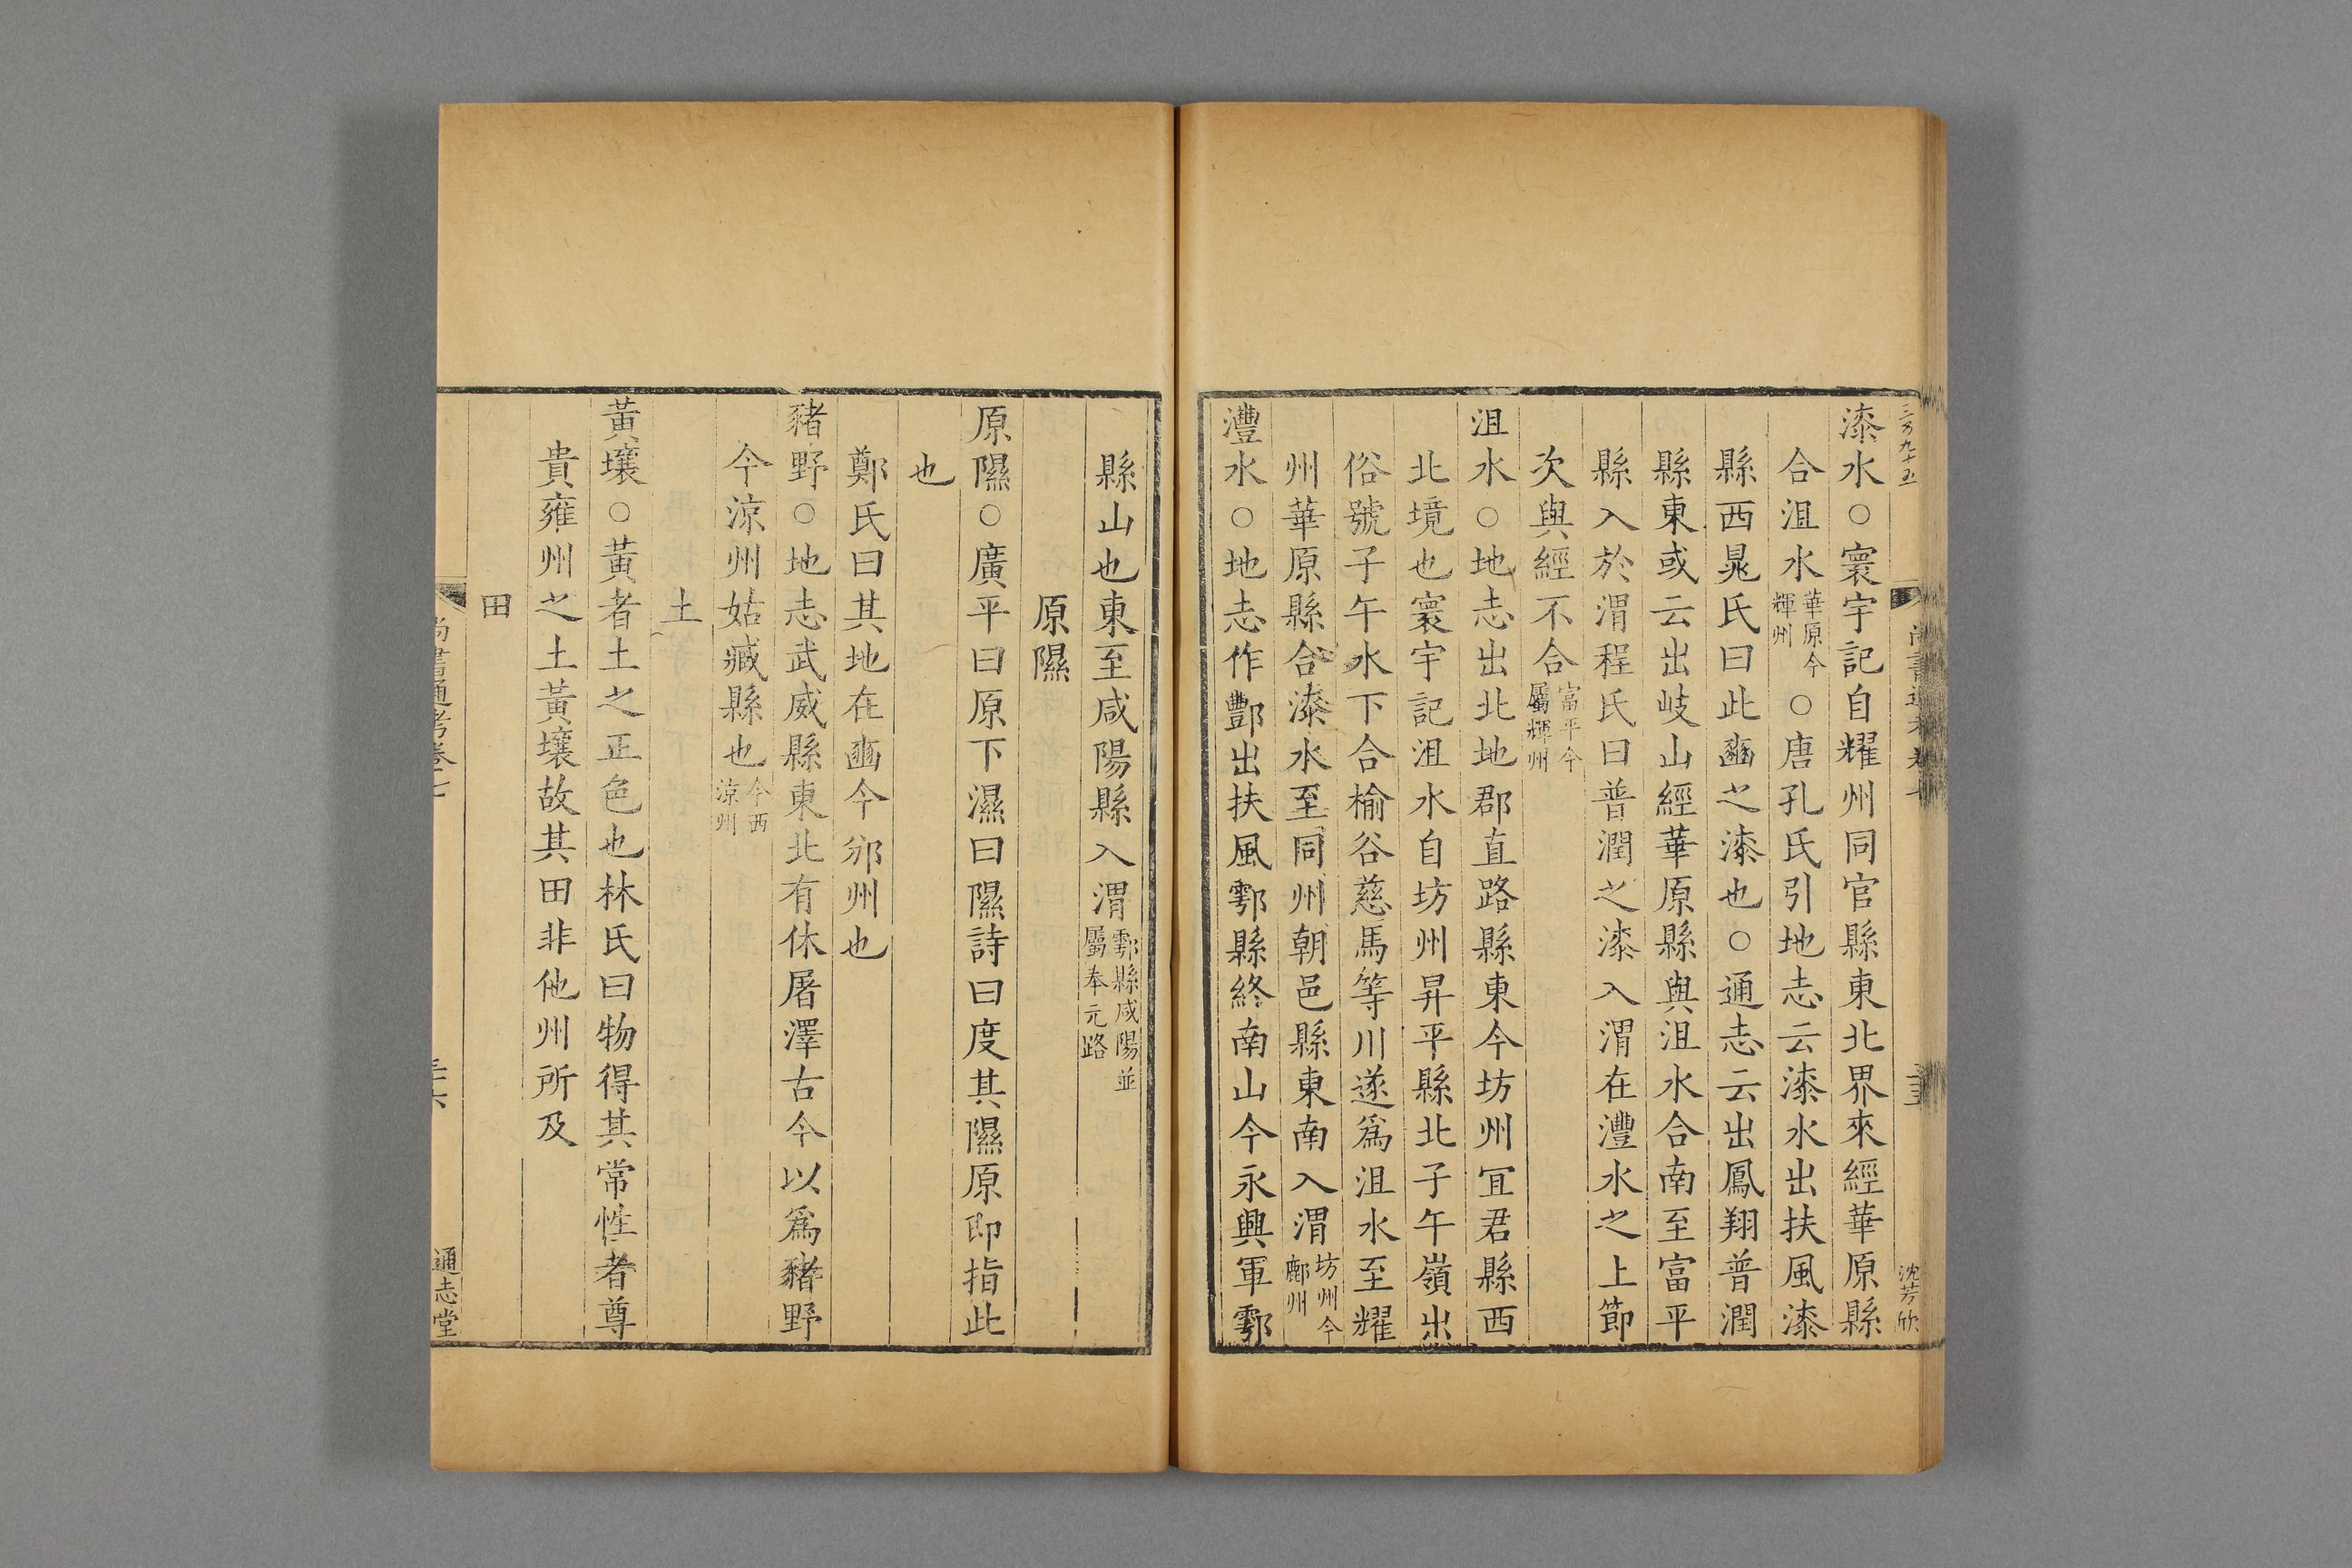 三万九十五
沈芳欣
漆水○寰宇記自耀州同官縣東北界來經華原縣
合沮水華原今輝州○唐孔氏引地志云漆水出扶風漆
縣西晁氏曰此豳之漆也○通志云出鳳翔普潤
縣東或云出岐山經華原縣與沮水合南至富平
縣入於渭程氏曰普潤之漆入渭在灃水之上節
次與經不合富平今屬輝州
沮水○地志出北地郡直路縣東今坊州宜君縣西
北境也寰宇記沮水自坊州昇平縣北子午嶺出
俗號子午水下合榆谷慈馬等川遂爲沮水至耀
州華原縣合漆水至同州朝邑縣東南入渭坊州今鄜州
灃水○地志作酆出扶風鄠縣終南山今永興軍鄠
縣山也東至咸陽縣入渭鄠縣咸陽並屬奉元路
原隰
原隰○廣平曰原下濕曰隰詩曰度其隰原即指此
也
鄭氏曰其地在豳今邠州也
豬野○地志武威縣東北有休屠澤古今以爲豬野
今涼州姑臧縣也今西涼州
土
黃壤○黃者土之正色也林氏曰物得其常性者尊
貴雍州之土黃壤故其田非他州所及
田
尚書通考卷七
通志堂